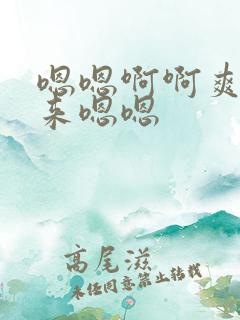 嗯嗯啊啊爽
来嗯嗯
高尾滋
未经同意禁止转载